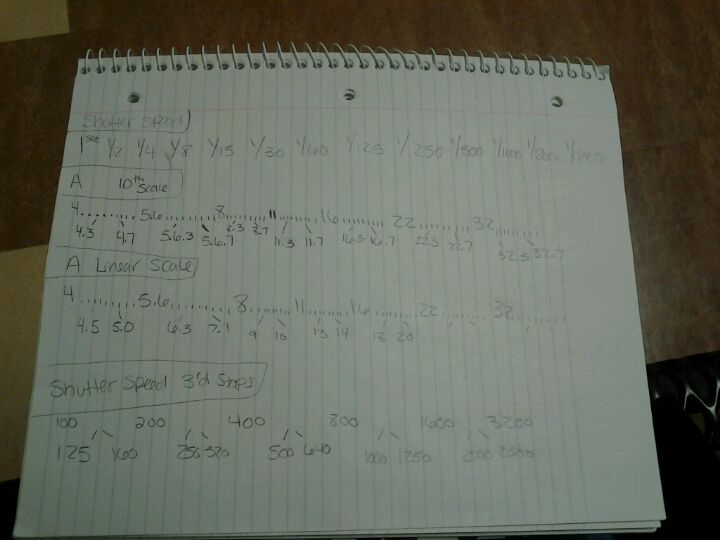 Shutter Speed
1 sec 1/2 1/4 1/8 1/15 1/30 1/60 1/125 1/250 1/500 1/1000 1/2000
A 10th Scale
4 5.6 8 11 16 22 32
4.3 4.7 5.6.3 5.6.7 8.3 8.7 11.3 11.7 16.3 16.7 22.3 22.7 32.3 32.7
A Linear Scale
4 5.6 8 11 16 22 32
4.5 5.0 6.3 7.1 9 10 13 14 18 20
Shutter Speed 3'd Stops
100 200 400 800 1600 3200
125 160 250 320 500 640 1000 1250 2000 2500